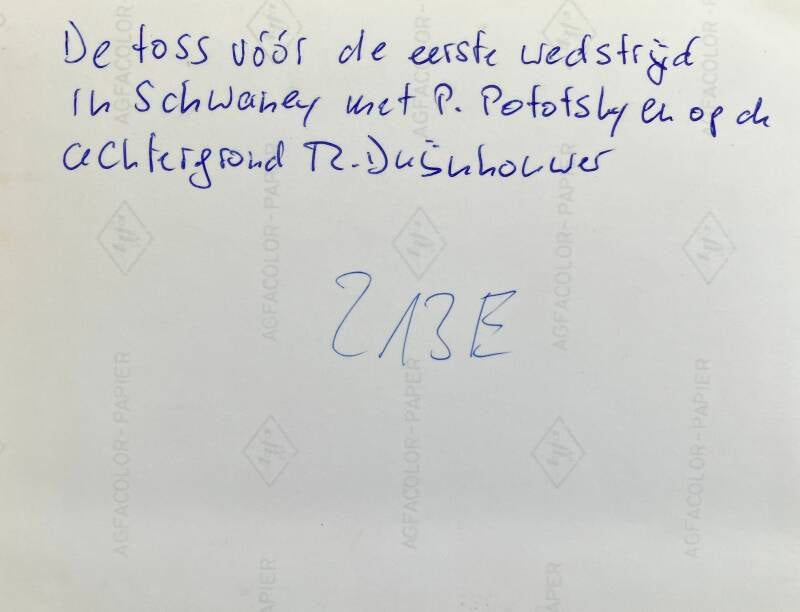 De toss vóór de eerste wedstrijd
in Schwaney met P. Pototsky en op de
achtergrond R. Duijnhouwer
213E
AGFACOLOR-PAPIER
AGFACOLOR-PAPIER
AGFACOLOR-PAPIER
AGFACOLOR-PAPIER
AGFACOLOR-PAPIER
AGFACOLOR-PAPIER
AGFACOLOR-PAPIER
AGFACOLOR-PAPIER
PAPIER
PAPIER